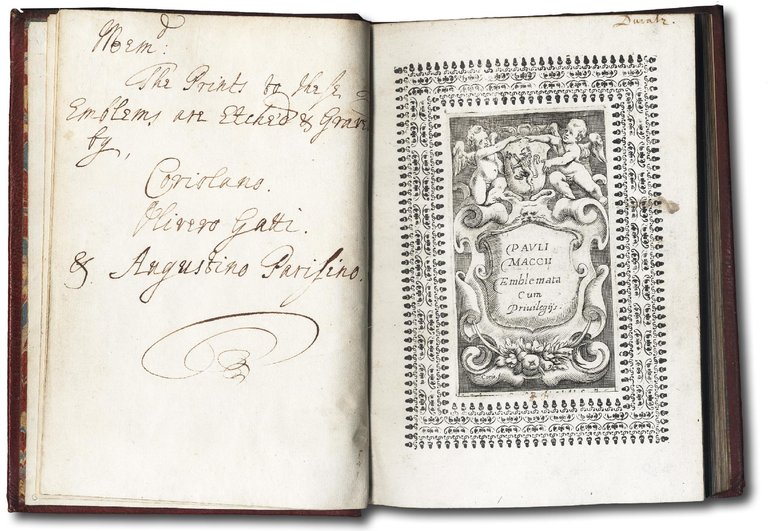 Mem^d:
The Prints to these
Emblems are Etched & Grave
by,
Coriolano.
Olivero Gatti.
& Augustino Parisino.
PAVLI
MACCII
Emblemata
Cum
Privilegijs.